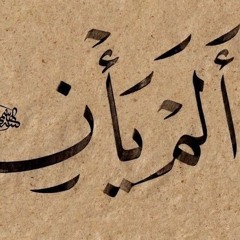 أَلَمْ يَأْنِ